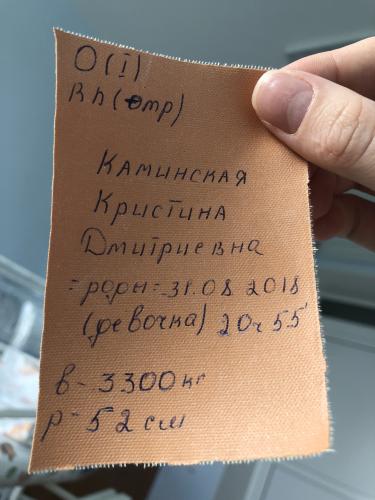 O(I)
Rh(-отр)
Каминская
Кристина
Дмитриевна
=родн=31.08 2018
(девочка) 20ч 55'
в-3300кг
р-52см